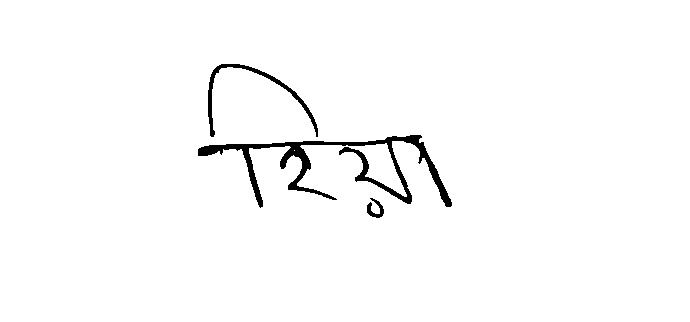 रिय़ा